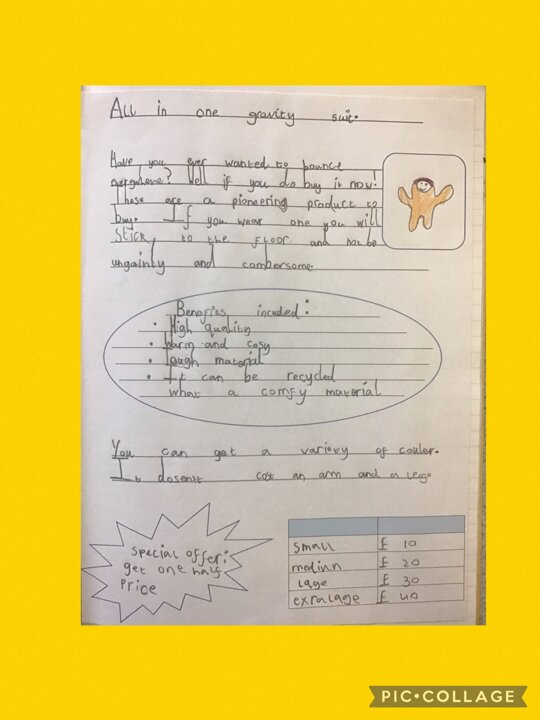 All in one gravity suit.
Have you ever wanted to bounce
everywhere? Well if you do buy it now!
These are a pioneering product to
buy. If you wear one you will
Stick to the floor and not be
ungainly and combersome
Benefits incuded:
• High quality
• Warm and cosy
• tough material
• It can be recycled
what a comfy material
You can get a variety of couler.
It dosent cot an arm and a leg.
special offer:
get one half
Price
small £ 10
mediun £ 20
lage £ 30
exralage £ 40
PIC•COLLAGE